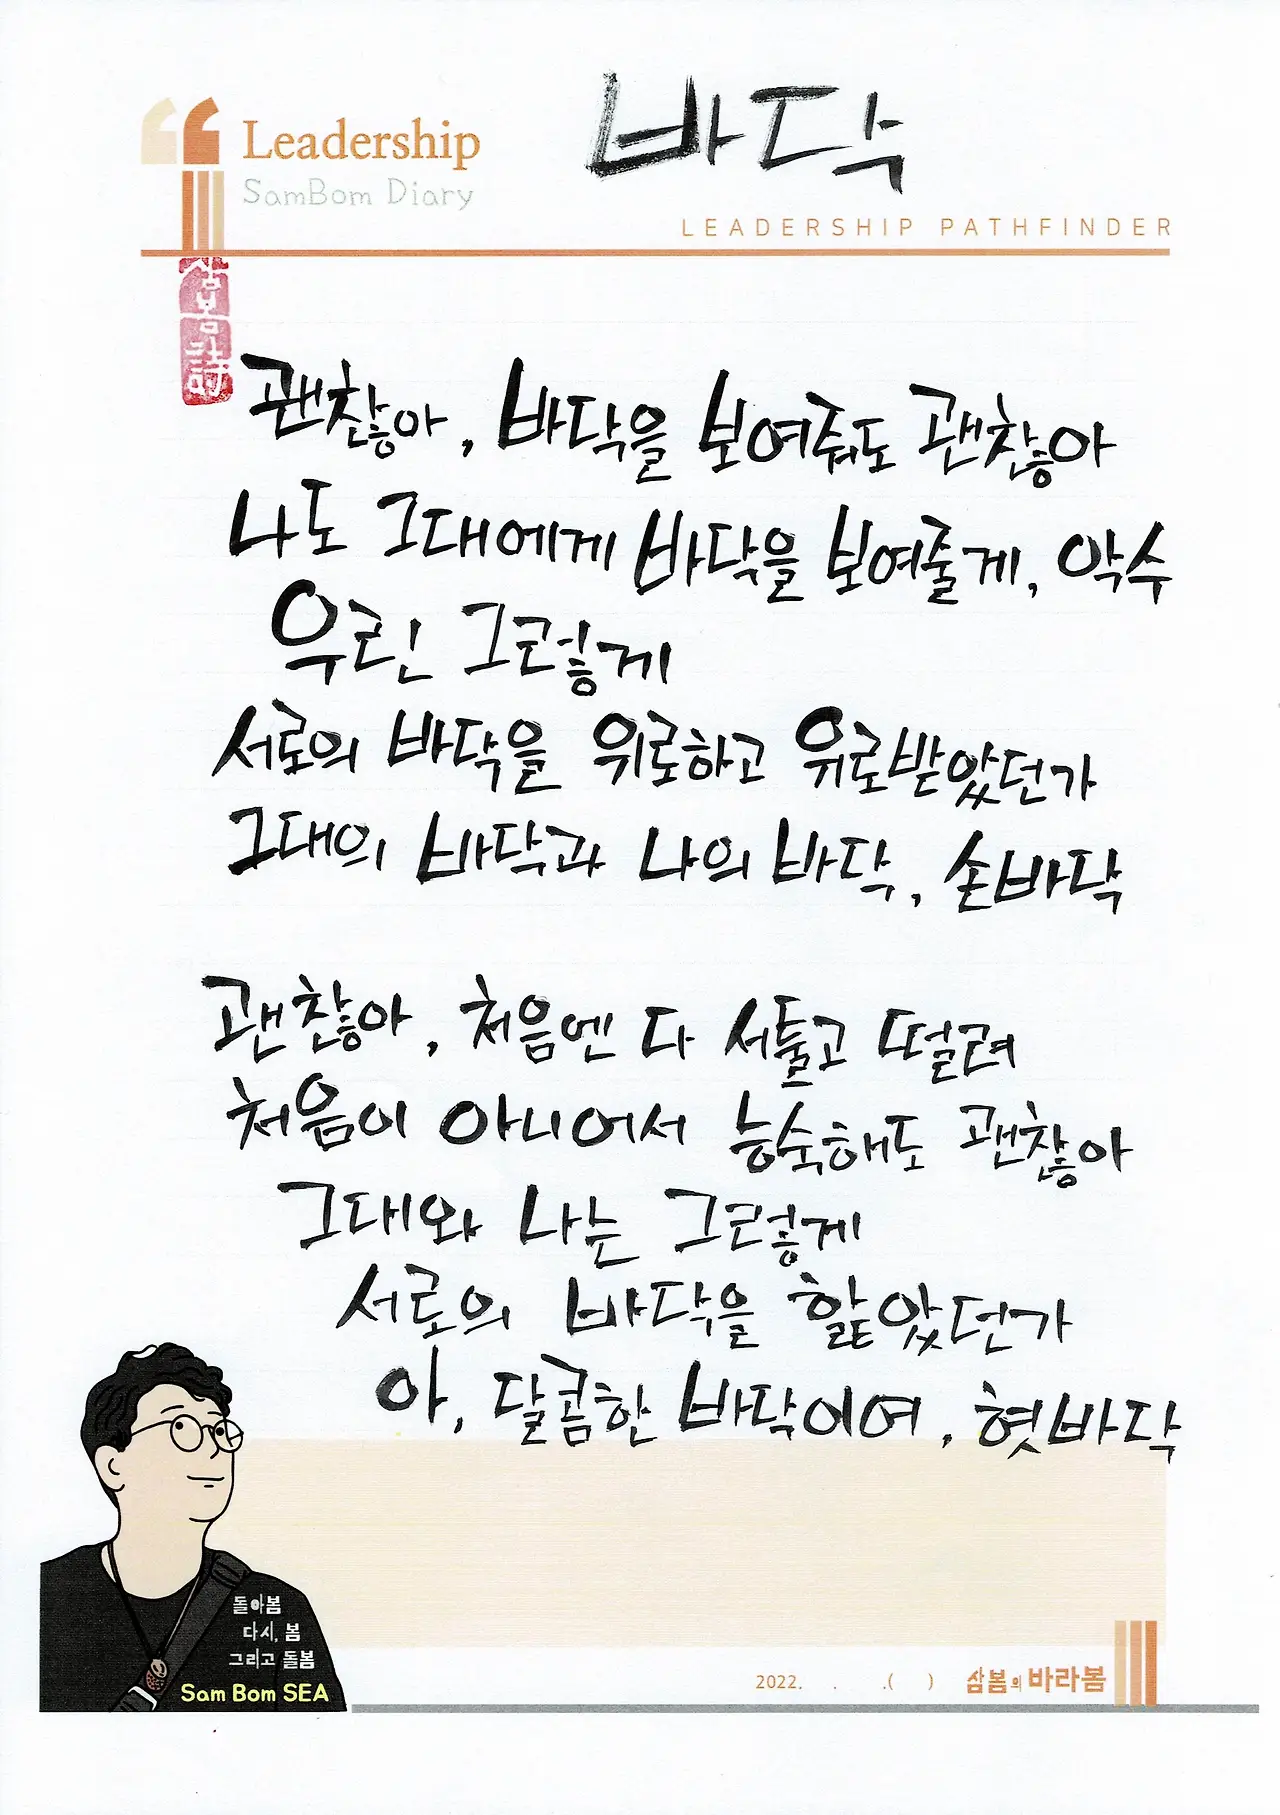 바닥
Leadership
SamBom Diary
LEADERSHIP PATHFINDER
삼봄詩
괜찮아, 바닥을 보여줘도 괜찮아
나도 그대에게 바닥을 보여줄게, 악수
우린 그렇게
서로의 바닥을 위로하고 위로받았던가
그대의 바닥과 나의 바닥, 손바닥
괜찮아, 처음엔 다 서툴고 떨려
처음이 아니어서 능숙해도 괜찮아
그대와 나는 그렇게
서로의 바닥을 핥았던가
아, 달콤한 바닥이여, 혓바닥
돌아봄
다시, 봄
그리고 돌봄
Sam Bom SEA
2022. . .( ) 삼봄의 바라봄